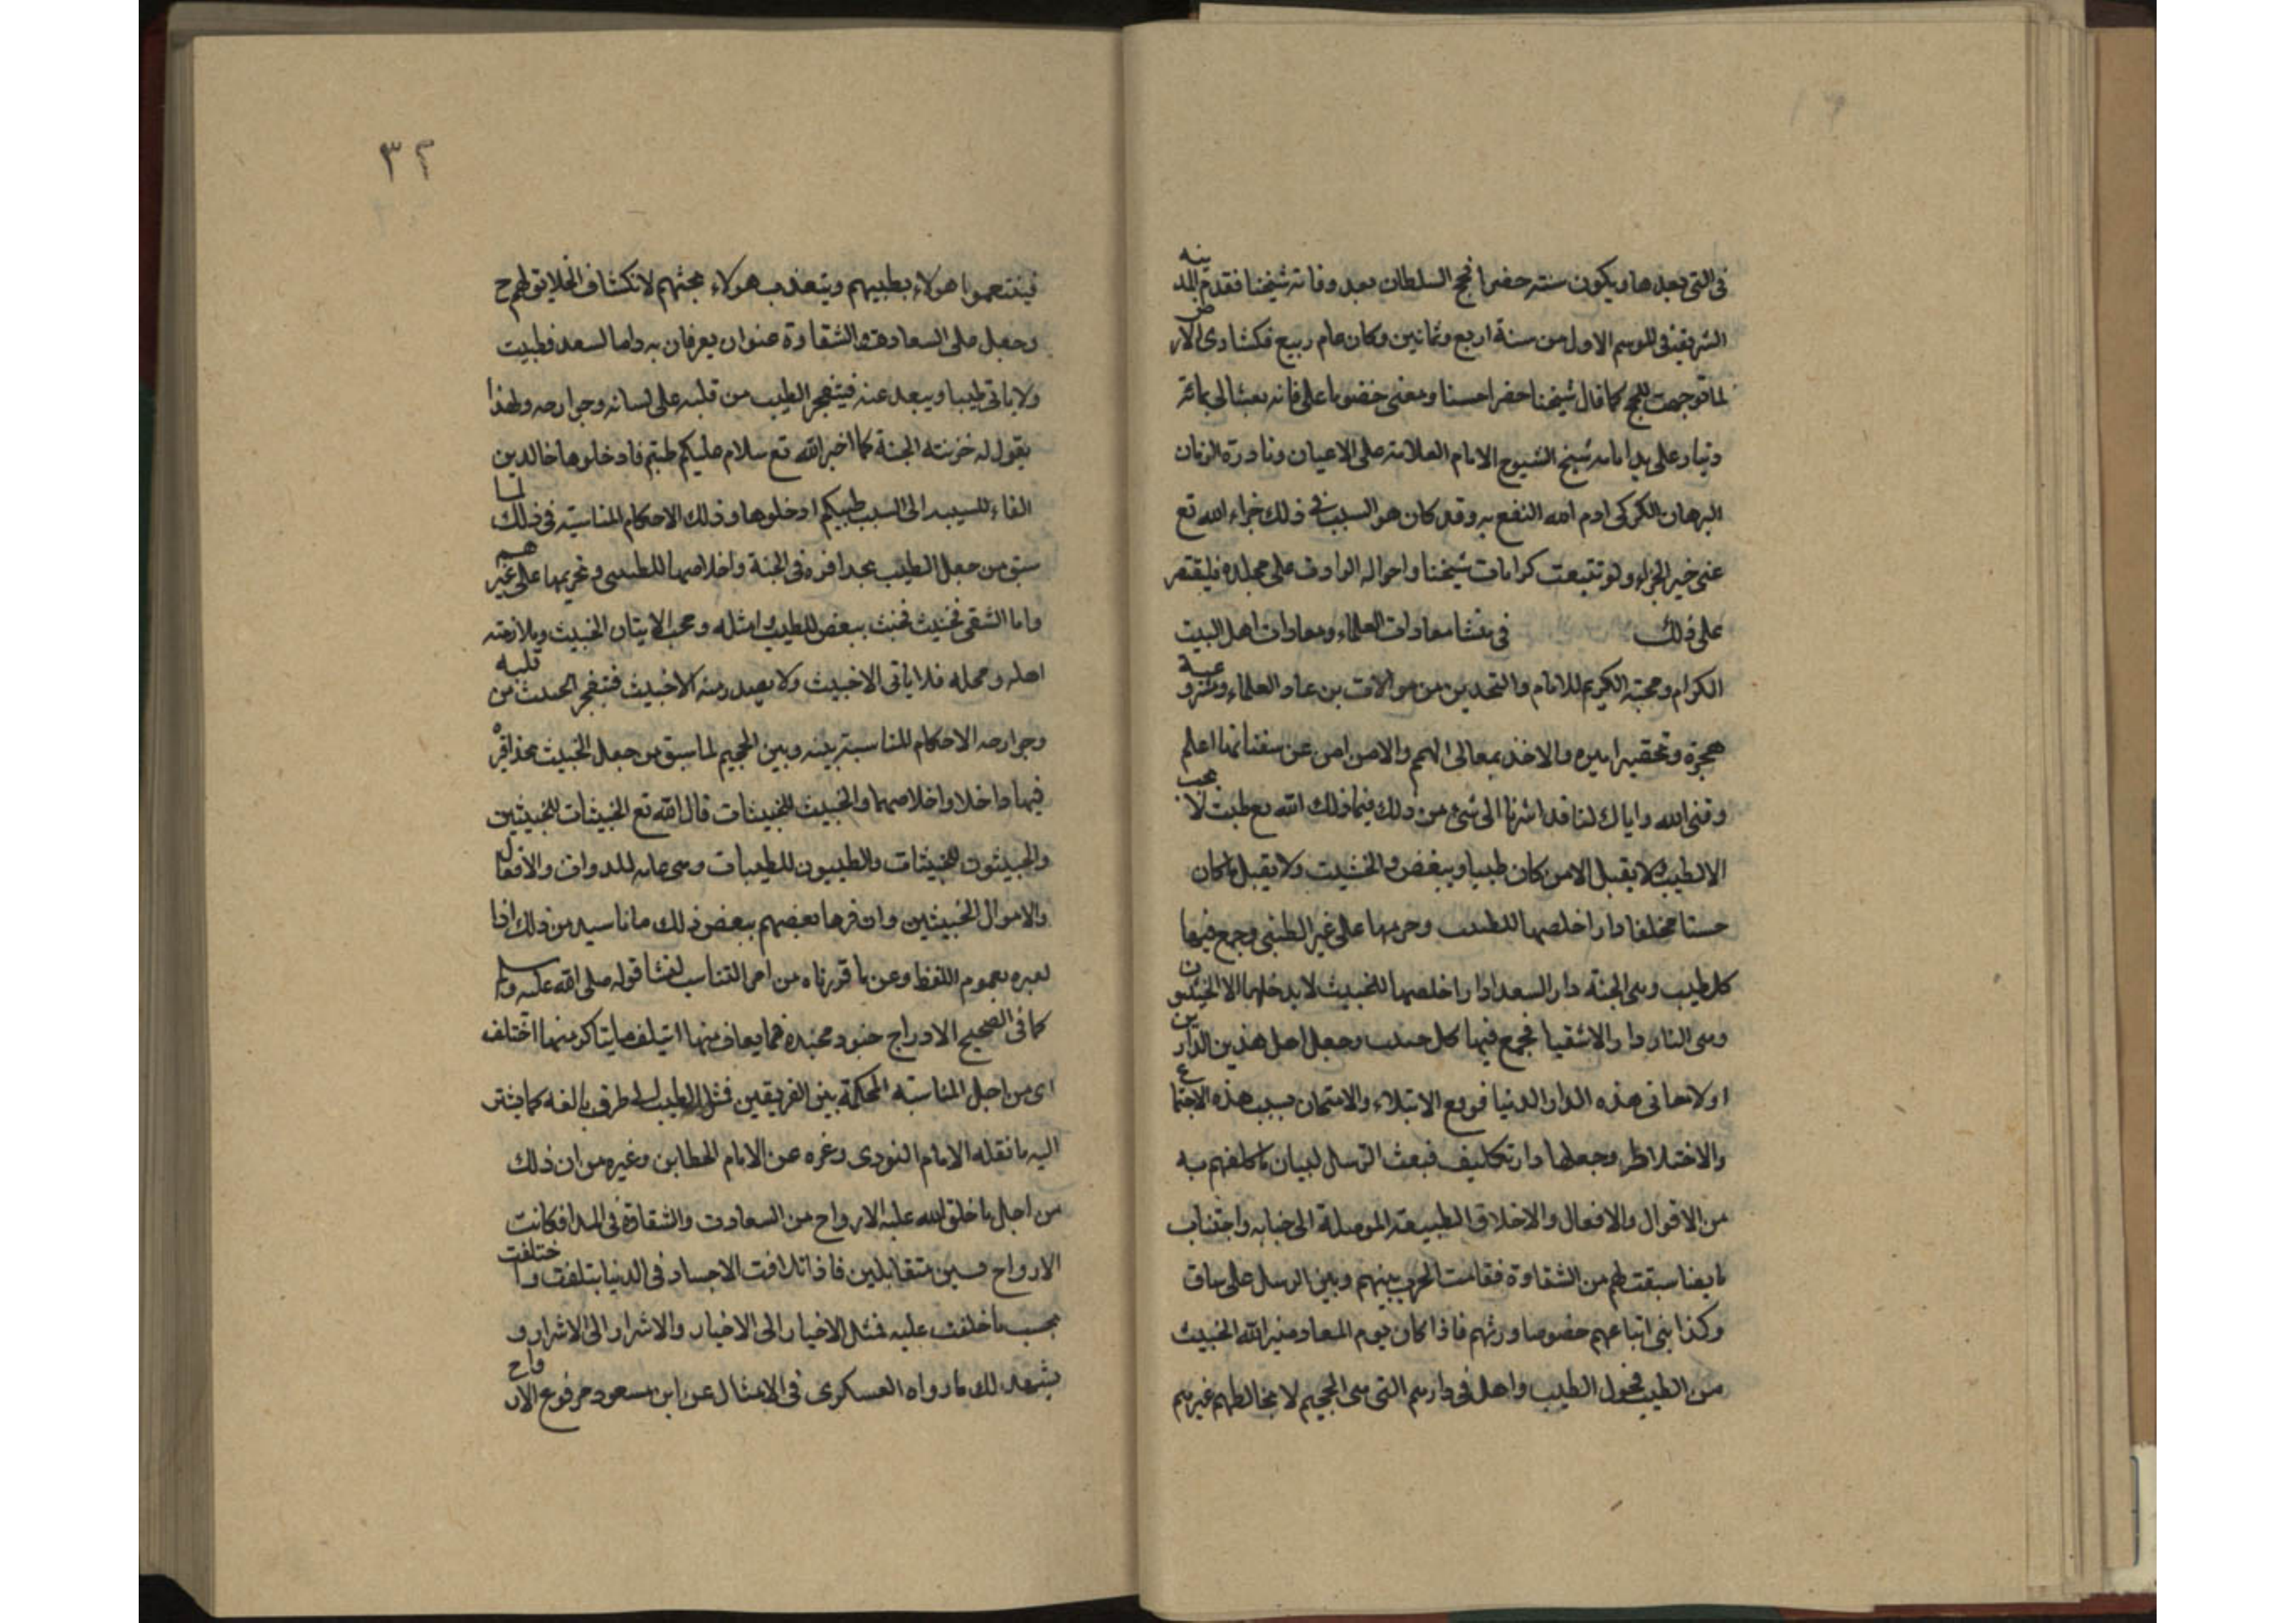 في التي بعدها ويكون سنته حضرا فحج السلطان بعد وفاته شيخنا فقدم المدينه
الشريفة في الموسم الاول من سنة اربع وثمانين وكان عام ربيع فكشا دى الارض
لما توجهت للحج كما قال شيخنا حضرا حسنا ومعنى خضوما على فانه بعث الي بمائة
دينار على يد امامه شيخ الشيوخ الامام العلامة على الاعيان ونادرة الزمان
البرهان الكركي ادم الله النفع به وقد كان هو السبب في ذلك جزاء الله تع
عني خير الجزاء ولو تتبعت كرامات شيخنا واحواله الوادف على مجلده فليقتصر
على ذلك في منشا معادات العلماء ومعادات اهل البيت
الكرام ومحبته الكريم للامام والتحدير من موالات من عاد العلماء ومشروعية
هجرة وتحقيرا ميره والاخذ بمعالى الهم والامن امن عن سفنا نها اعلم
وقنى الله واياك لنا قد اشرنا الى شئ من ذلك فيما ذلك الله تع طبت لا يحب
الا لطيب ولا يقبل الا من كان طيبا ويبغض والخشيت ولا يقبل ما كان
حسنا مخلفا دارا خلصها للطيب وحرمها على غير الطيبى وجمع فيها
كل طيب وهى الجنة دار السعدا دارا خلصها للخبيث لا يدخلها الا الخبيثون
وهى النار دار الاشقيا فجمع فيها كل حسب وجعل اهل هذين الدارين
اولادها في هذه الدار الدنيا فوقع الابتلاء والامتحان بسبب هذه الاجتماع
والاختلاط وجعلها دار تكليف فبعث الرسل لبيان ما كلفهم به
من الاقوال والافعال والاخلاق الطيبعة الموصلة الى جنابه واجتناب
ما يضا سبقت لهم من الشقاوة فقامت الحرب بينهم وبين الرسل على ساق
وكذا بنى اتباعهم خضوصا ورثهم فاذا كان يوم المعاد ميز الله الخبيث
من الطيب فحول الطيب واهل في دارهم التي هي الجحيم لا يخالطهم غيرهم
٣٢
فينتعموا هولاء بطيبهم ويتعذب هولاء بخبثهم لانكشاف الخلايق لهم ح
وجعل على السعادة والشقاوة عنوان يعرفان به واما السعد فطيبت
ولا ياتي طيبا ويبعد عنه فيتفجر الطيب من قلبه على لسانه وجوارحه ولهذا
يقول له خزنته الجنة كما اخبر الله تع سلام عليكم طبتم فادخلوها خالدين
الفاء للسيبه الى السبب طيبكم ادخلوها وذلك الاحكام المناسبة في ذلك لما
سبق من جعل الطيب بحدافره في الجنة واخلاصها للطيبى وتحريمها على غيرهم
واما الشقى فخبيث فخبث ببغض للطيب وامثله ومحب الايتان الخبيث وملازمته
اهله ومحله فلا ياتى الاخبيث ولا يصدر منه الاخبيث فتفجر الحدث من قلبه
وجوارحه الاحكام المناسبة بينه وبين الجحيم لما سبق من جعل الخبيث بحذافره
فيها داخلا واخلاصها والخبيث للخبيثات قال الله تع الخبيثات للخبيثين
والخبيثون للخبيثات والطيبون للطيبات وهى عامه للدوات والافعال
والاموال الخبيثين وان فرها بعضهم ببعض ذلك ما ناسيه من ذلك اذا
لعبره بعموم اللفظ وعن ما قررناه من امر التناسب لفشا قوله صلى الله عليه وسلم
كما في الصحيح الادراج جنود مجنده فما يعاف منها ائتيلف ما يتاكر منها اختلف
اى من اجل المناسبة المحكمة بين الفريقين فمثل الطيب الى طرفي بالفه كما يشر
اليه ما نقله الامام النودى وغره عن الامام الخطابن وغيره من ان ذلك
من اجل ما خلق الله عليه الارواح من السعادت والشقاوة في المبدا فكانت
الارواح قسين متقابلين فاذا تلاقت الاجساد في الدنيا بتلفت واختلفت
بحسب ما خلفت عليه فمثل الاخيار الى الاخيار والاشرار الى الاشرار و
يشهد لك ما رواه العسكرى في الامثال عن ابن مسعود مرفوع الارواح